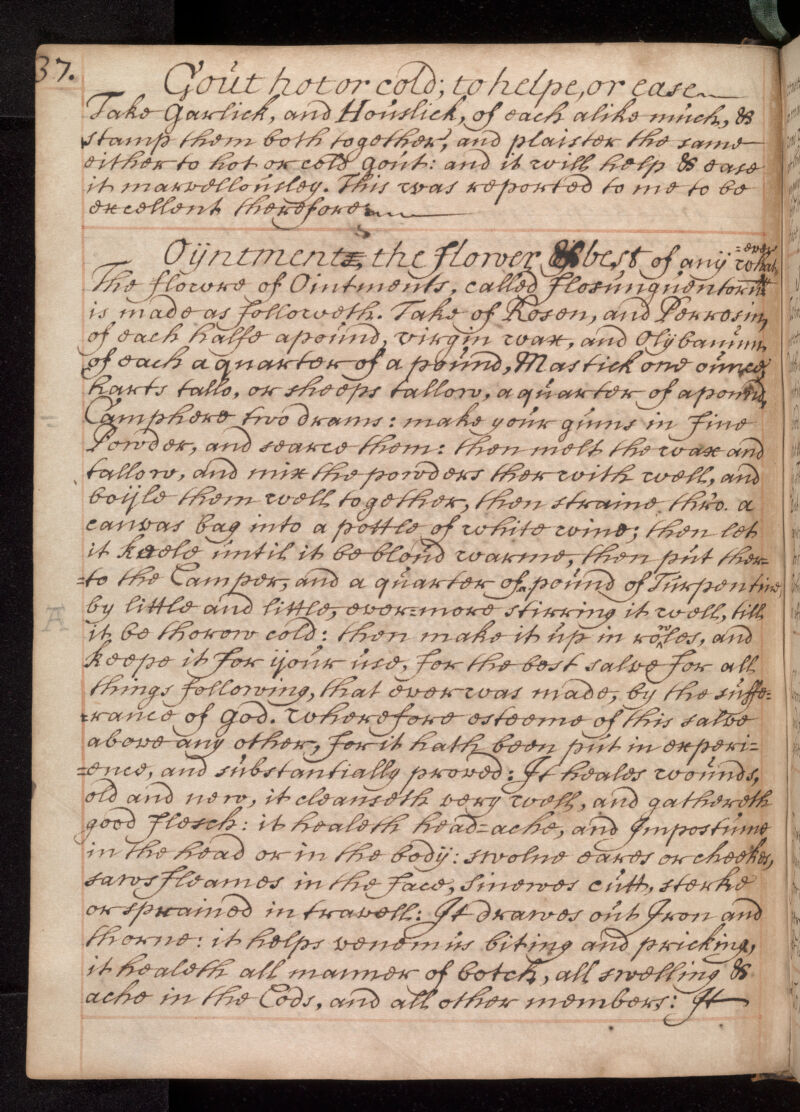 37.
Gout hot or cold; to helpe, or ease
Take Garlick, and Houslick, of each alike much, &
stamp them both together, and plaister the same
either to hot or cold gout: and it will help & ease
it marvellousley. This was reported to me to be
excellent therefore:
Oijntment, the flower & best of any what=
=ever
The flowre of Ointments, called flosunguentorum
is made as followeth. Take of Rosen, and Perrosin,
of each halfe a pound, virgin wax, and Olijbanum
of each a quarter of a pound, Mastick one ounce,
harts talle, or sheeps tallow, a quarter of a pound,
Camphere two drams: make your gums in fine
Powder, and searce them: then melt the wax and
tallow, and mix the powders ther with well, and
boijle them well together, then straine thro. a
canvas bag into a pottle of white wine; then let
it keele until it be bloud warme, then put ther=
=to the Camper, and a quarter of a pound of Turpentine,
by little and little, ever=more stirring it well, till
it be thorow cold: then make it up in roles, and
keepe it for ijour use, for the best salve for all
things following, that ever was made, by the suffe=
=rance of God. Wherefore esteeme of this salve
above any other, for it hath been put in experi=
=ence, and substantially proved: It heales wounds,
old and new, it cleanseth very well, and gathereth
good flesch: it healeth head=ache, and Impostume
in the head or in the body: swolne eares or cheekes,
sawsfleames in the face, Sinewes cutt, sterke
or sprained in travell: It drawes out Iron and
thorne: it helps venemus biting and pricking,
it healeth all manner of botch, all swelling &
ache in the Cods, and all other members: It
A